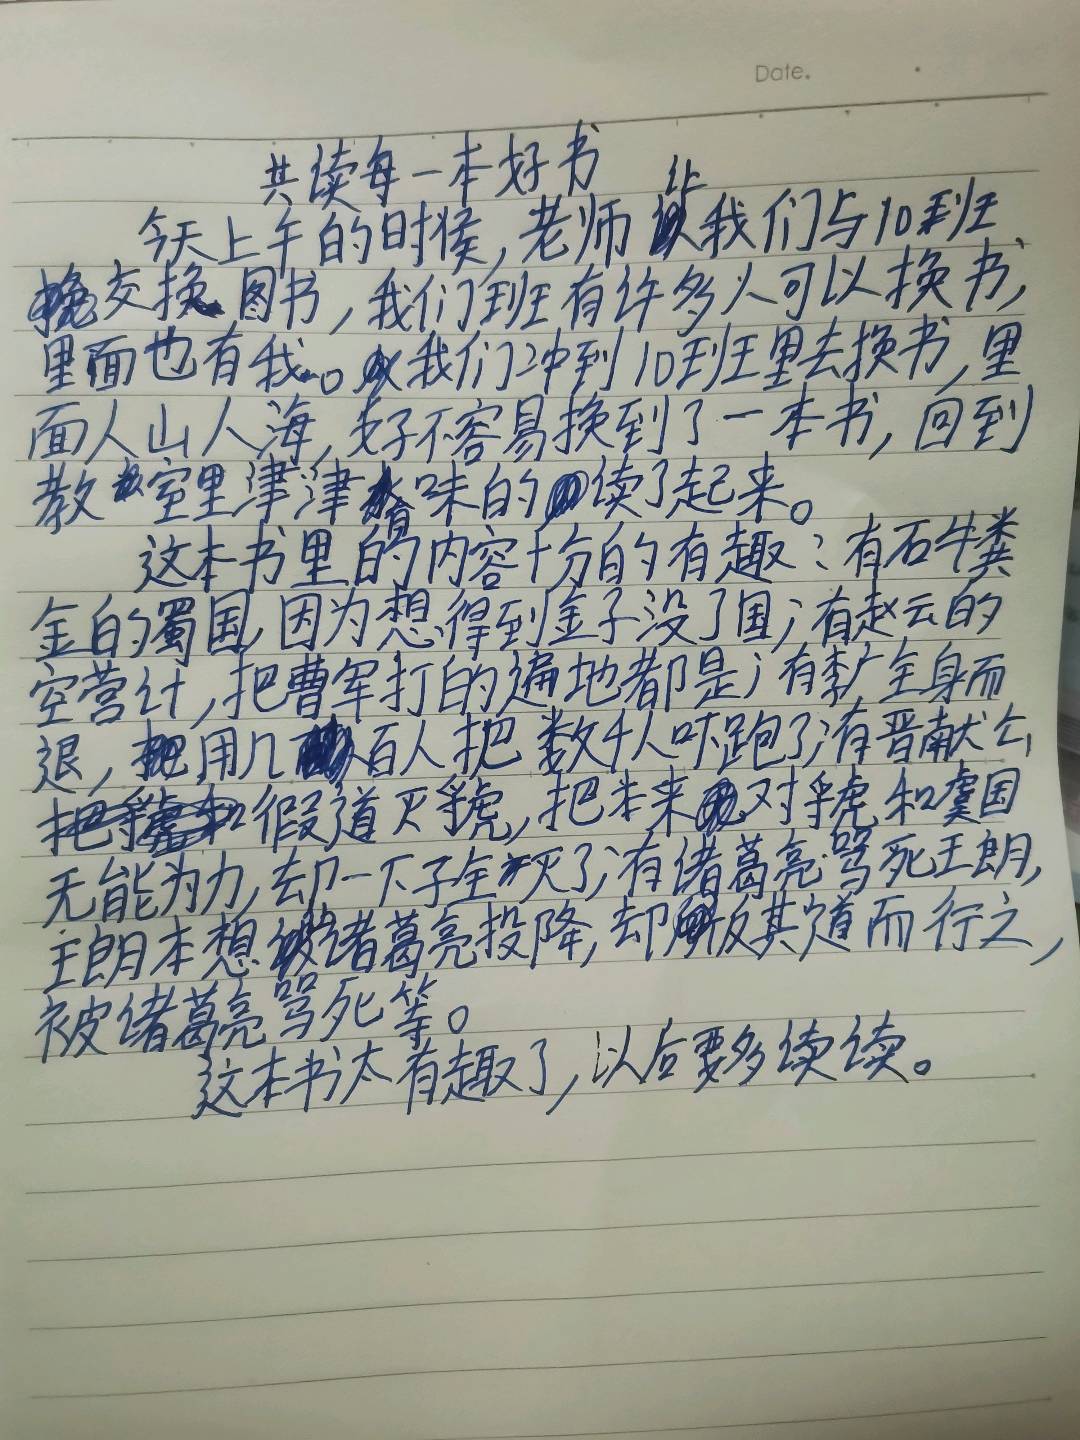 Date.
共读每一本好书
今天上午的时候,老师让我们与10班
交换图书,我们班有许多人可以换书,
里面也有我。我们冲到10班里去换书,里
面人山人海,好不容易换到了一本书,回到
教室里津津有味的读了起来。
这本书里的内容十分的有趣:有石牛粪
金的蜀国,因为想得到金子没了国;有赵云的
空营计,把曹军打的遍地都是;有李广全身而
退,用几百人把数千人吓跑了;有晋献公
假道灭虢,把本来对虢和虞国
无能为力,却一下子全灭了;有诸葛亮骂死王朗,
王朗本想被诸葛亮投降,却反其道而行之,
被诸葛亮骂死等。
这本书太有趣了,以后要多读读。